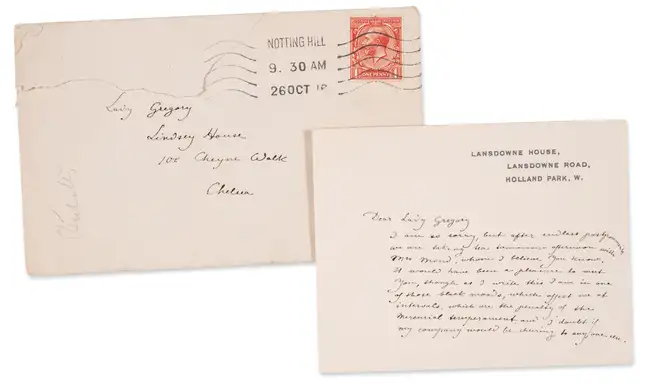 NOTTING HILL
9. 30 AM
26 OCT
ONE PENNY
Lady Gregory
Lindsey House
100 Cheyne Walk
Chelsea
LANSDOWNE HOUSE,
LANSDOWNE ROAD,
HOLLAND PARK, W.
Dear Lady Gregory
I am so sorry, but after endless postponements
we are taking tea tomorrow afternoon with
Mrs Mond, whom I believe you know.
It would have been a pleasure to meet
you, though as I write this I am in one
of those black moods, which afflict me at
intervals, which are the penalty of the
mercurial temperament and I doubt if
my company would be cheering to anyone